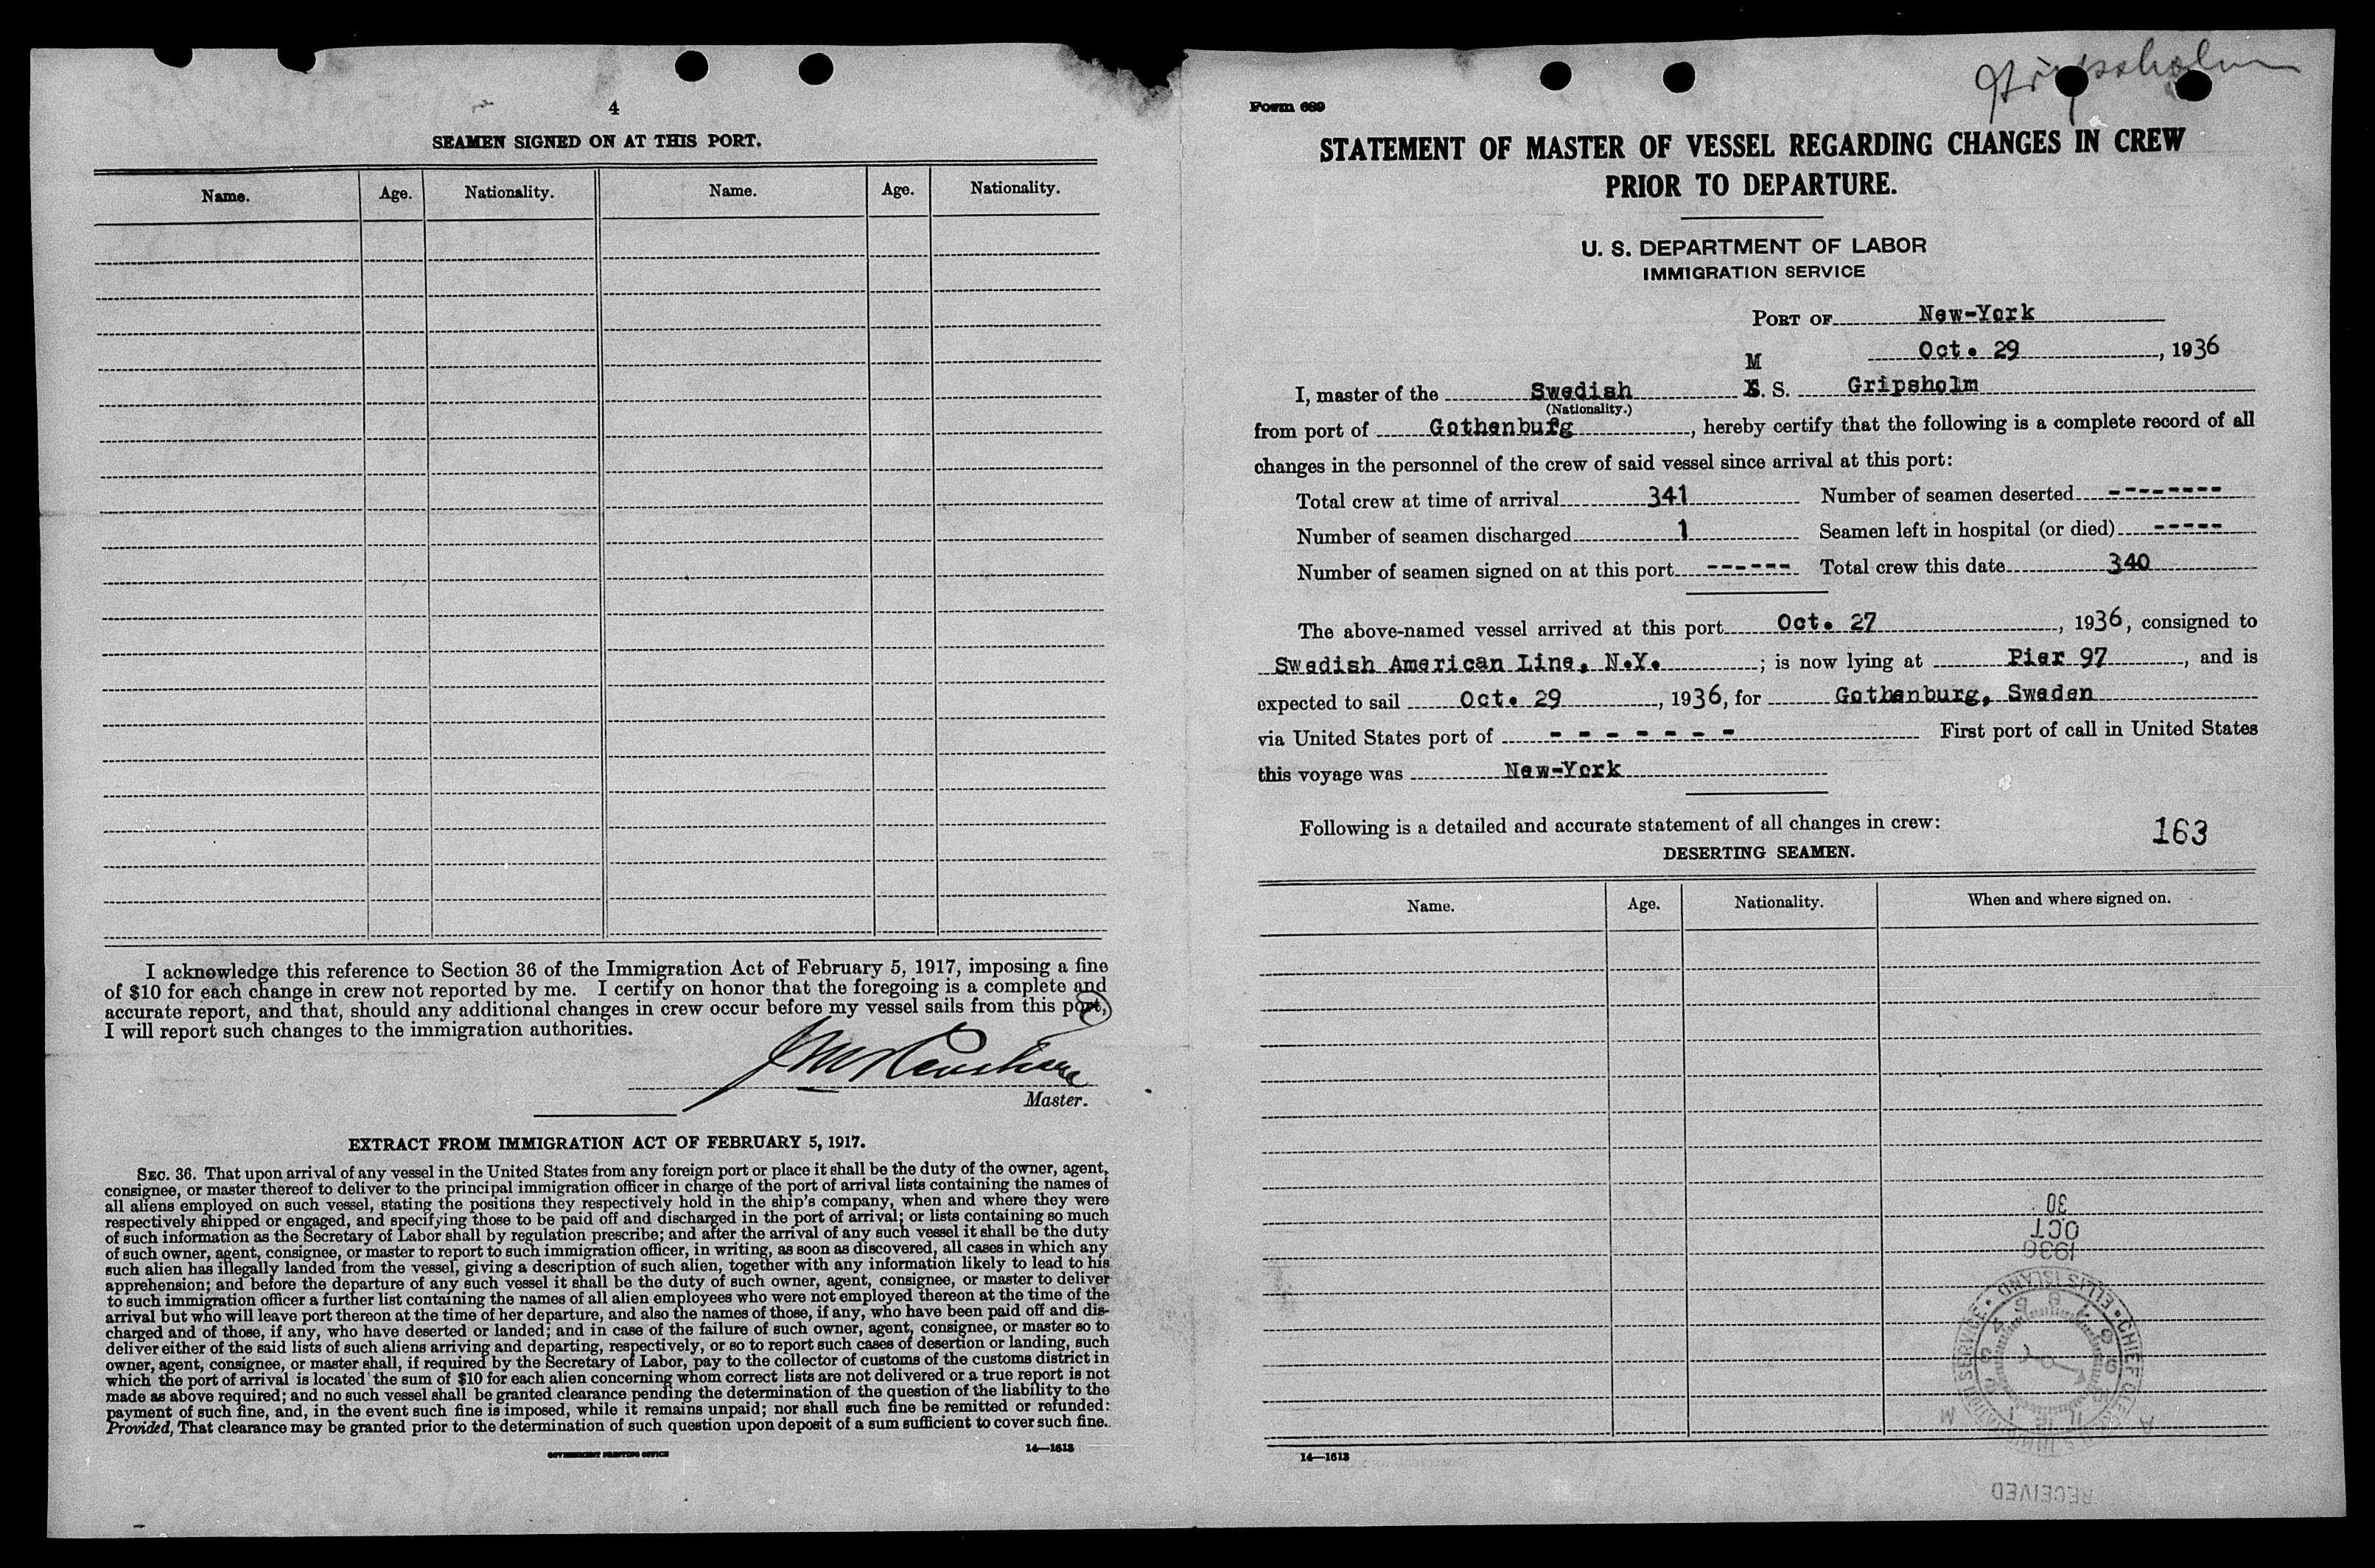 4
SEAMEN SIGNED ON AT THIS PORT.
Name. Age. Nationality. Name. Age. Nationality.
I acknowledge this reference to Section 36 of the Immigration Act of February 5, 1917, imposing a fine
of $10 for each change in crew not reported by me. I certify on honor that the foregoing is a complete and
accurate report, and that, should any additional changes in crew occur before my vessel sails from this port,
I will report such changes to the immigration authorities.
Master.
EXTRACT FROM IMMIGRATION ACT OF FEBRUARY 5, 1917.
SEC. 36. That upon arrival of any vessel in the United States from any foreign port or place it shall be the duty of the owner, agent,
consignee, or master thereof to deliver to the principal immigration officer in charge of the port of arrival lists containing the names of
all aliens employed on such vessel, stating the positions they respectively hold in the ship's company, when and where they were
respectively shipped or engaged, and specifying those to be paid off and discharged in the port of arrival; or lists containing so much
of such information as the Secretary of Labor shall by regulation prescribe; and after the arrival of any such vessel it shall be the duty
of such owner, agent, consignee, or master to report to such immigration officer, in writing, as soon as discovered, all cases in which any
such alien has illegally landed from the vessel, giving a description of such alien, together with any information likely to lead to his
apprehension; and before the departure of any such vessel it shall be the duty of such owner, agent, consignee, or master to deliver
to such immigration officer a further list containing the names of all alien employees who were not employed thereon at the time of the
arrival but who will leave port thereon at the time of her departure, and also the names of those, if any, who have been paid off and dis-
charged and of those, if any, who have deserted or landed; and in case of the failure of such owner, agent, consignee, or master so to
deliver either of the said lists of such aliens arriving and departing, respectively, or so to report such cases of desertion or landing, such
owner, agent, consignee, or master shall, if required by the Secretary of Labor, pay to the collector of customs of the customs district in
which the port of arrival is located the sum of $10 for each alien concerning whom correct lists are not delivered or a true report is not
made as above required; and no such vessel shall be granted clearance pending the determination of the question of the liability to the
payment of such fine, and, in the event such fine is imposed, while it remains unpaid; nor shall such fine be remitted or refunded:
Provided, That clearance may be granted prior to the determination of such question upon deposit of a sum sufficient to cover such fine.
GOVERNMENT PRINTING OFFICE 14—1613
Gripsholm
Form 689
STATEMENT OF MASTER OF VESSEL REGARDING CHANGES IN CREW
PRIOR TO DEPARTURE.
U. S. DEPARTMENT OF LABOR
IMMIGRATION SERVICE
PORT OF New-York
Oct. 29, 1936
M
I, master of the Swedish S. S. Gripsholm
(Nationality.)
from port of Gothenburg, hereby certify that the following is a complete record of all
changes in the personnel of the crew of said vessel since arrival at this port:
Total crew at time of arrival 341 Number of seamen deserted --------
Number of seamen discharged 1 Seamen left in hospital (or died) -----
Number of seamen signed on at this port ------ Total crew this date 340
The above-named vessel arrived at this port Oct. 27, 1936, consigned to
Swedish American Line, N.Y. ; is now lying at Pier 97, and is
expected to sail Oct. 29, 1936, for Gothenburg, Sweden
via United States port of - - - - - - - First port of call in United States
this voyage was New-York
Following is a detailed and accurate statement of all changes in crew:
163
DESERTING SEAMEN.
Name. Age. Nationality. When and where signed on.
30
OCT
1936
ELLIS ISLAND
14—1613
RECEIVED